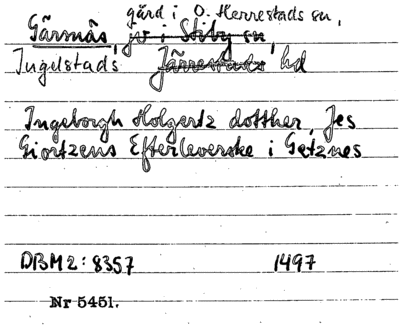 gård i Ö. Herrestads sn,
Gärsnäs, gs i Stiby sn,
Ingelstads Järrestads hd
Ingeborgh Holgertz dotther, Jes
Giortzens Efterleverske i Getznes
DBM 2: 8357 1497
Nr 5451.